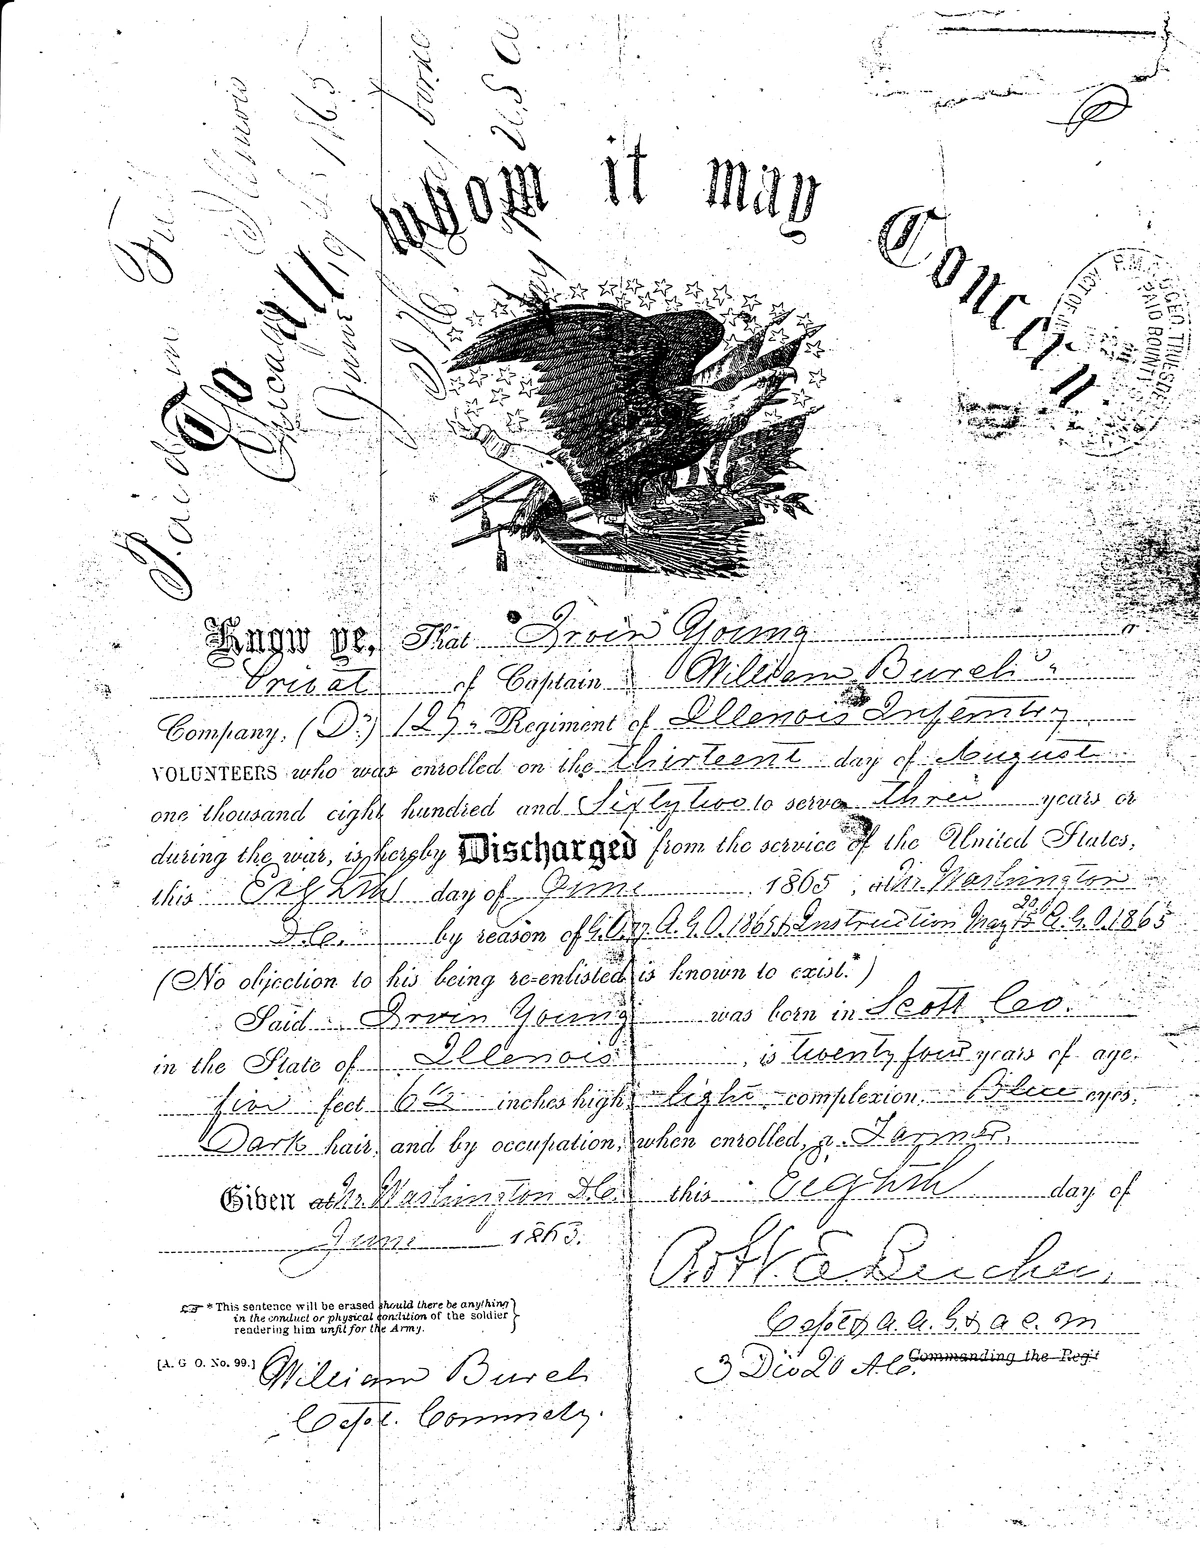 Paid in Full
Chicago Illinois
June 19th 1865
To all whom it may Concern
PAID BOUNTY
ACT OF
Know ye, That Irvin Young a
Privat of Captain William Burch
Company, (D.) 129 Regiment of Illenois Infentry
VOLUNTEERS who was enrolled on the thirteent day of August
one thousand eight hundred and Sixtytwo to serve three years or
during the war, is hereby Discharged from the service of the United States,
this Eighth day of June 1865, at Nr. Washington
D.C. by reason of G.O. 77 A.G.O. 1865 & Instruction May 20 A.G.O. 1865
(No objection to his being re-enlisted is known to exist.*)
Said Irvin Young was born in Scott Co.
in the State of Illenois, is twenty four years of age,
five feet 6 1/2 inches high, light complexion, Blue eyes,
Dark hair, and by occupation, when enrolled, a Farmer.
Given at Nr. Washington D.C. this Eighth day of
June 1865.
Robt. E. Beecher,
Capt & A. A. G. & A C. M
3 Div 20 A.C. Commanding the Reg't
* This sentence will be erased should there be anything
in the conduct or physical condition of the soldier
rendering him unfit for the Army.
[A. G. O. No. 99.]
William Burch
Capt. Commdg.